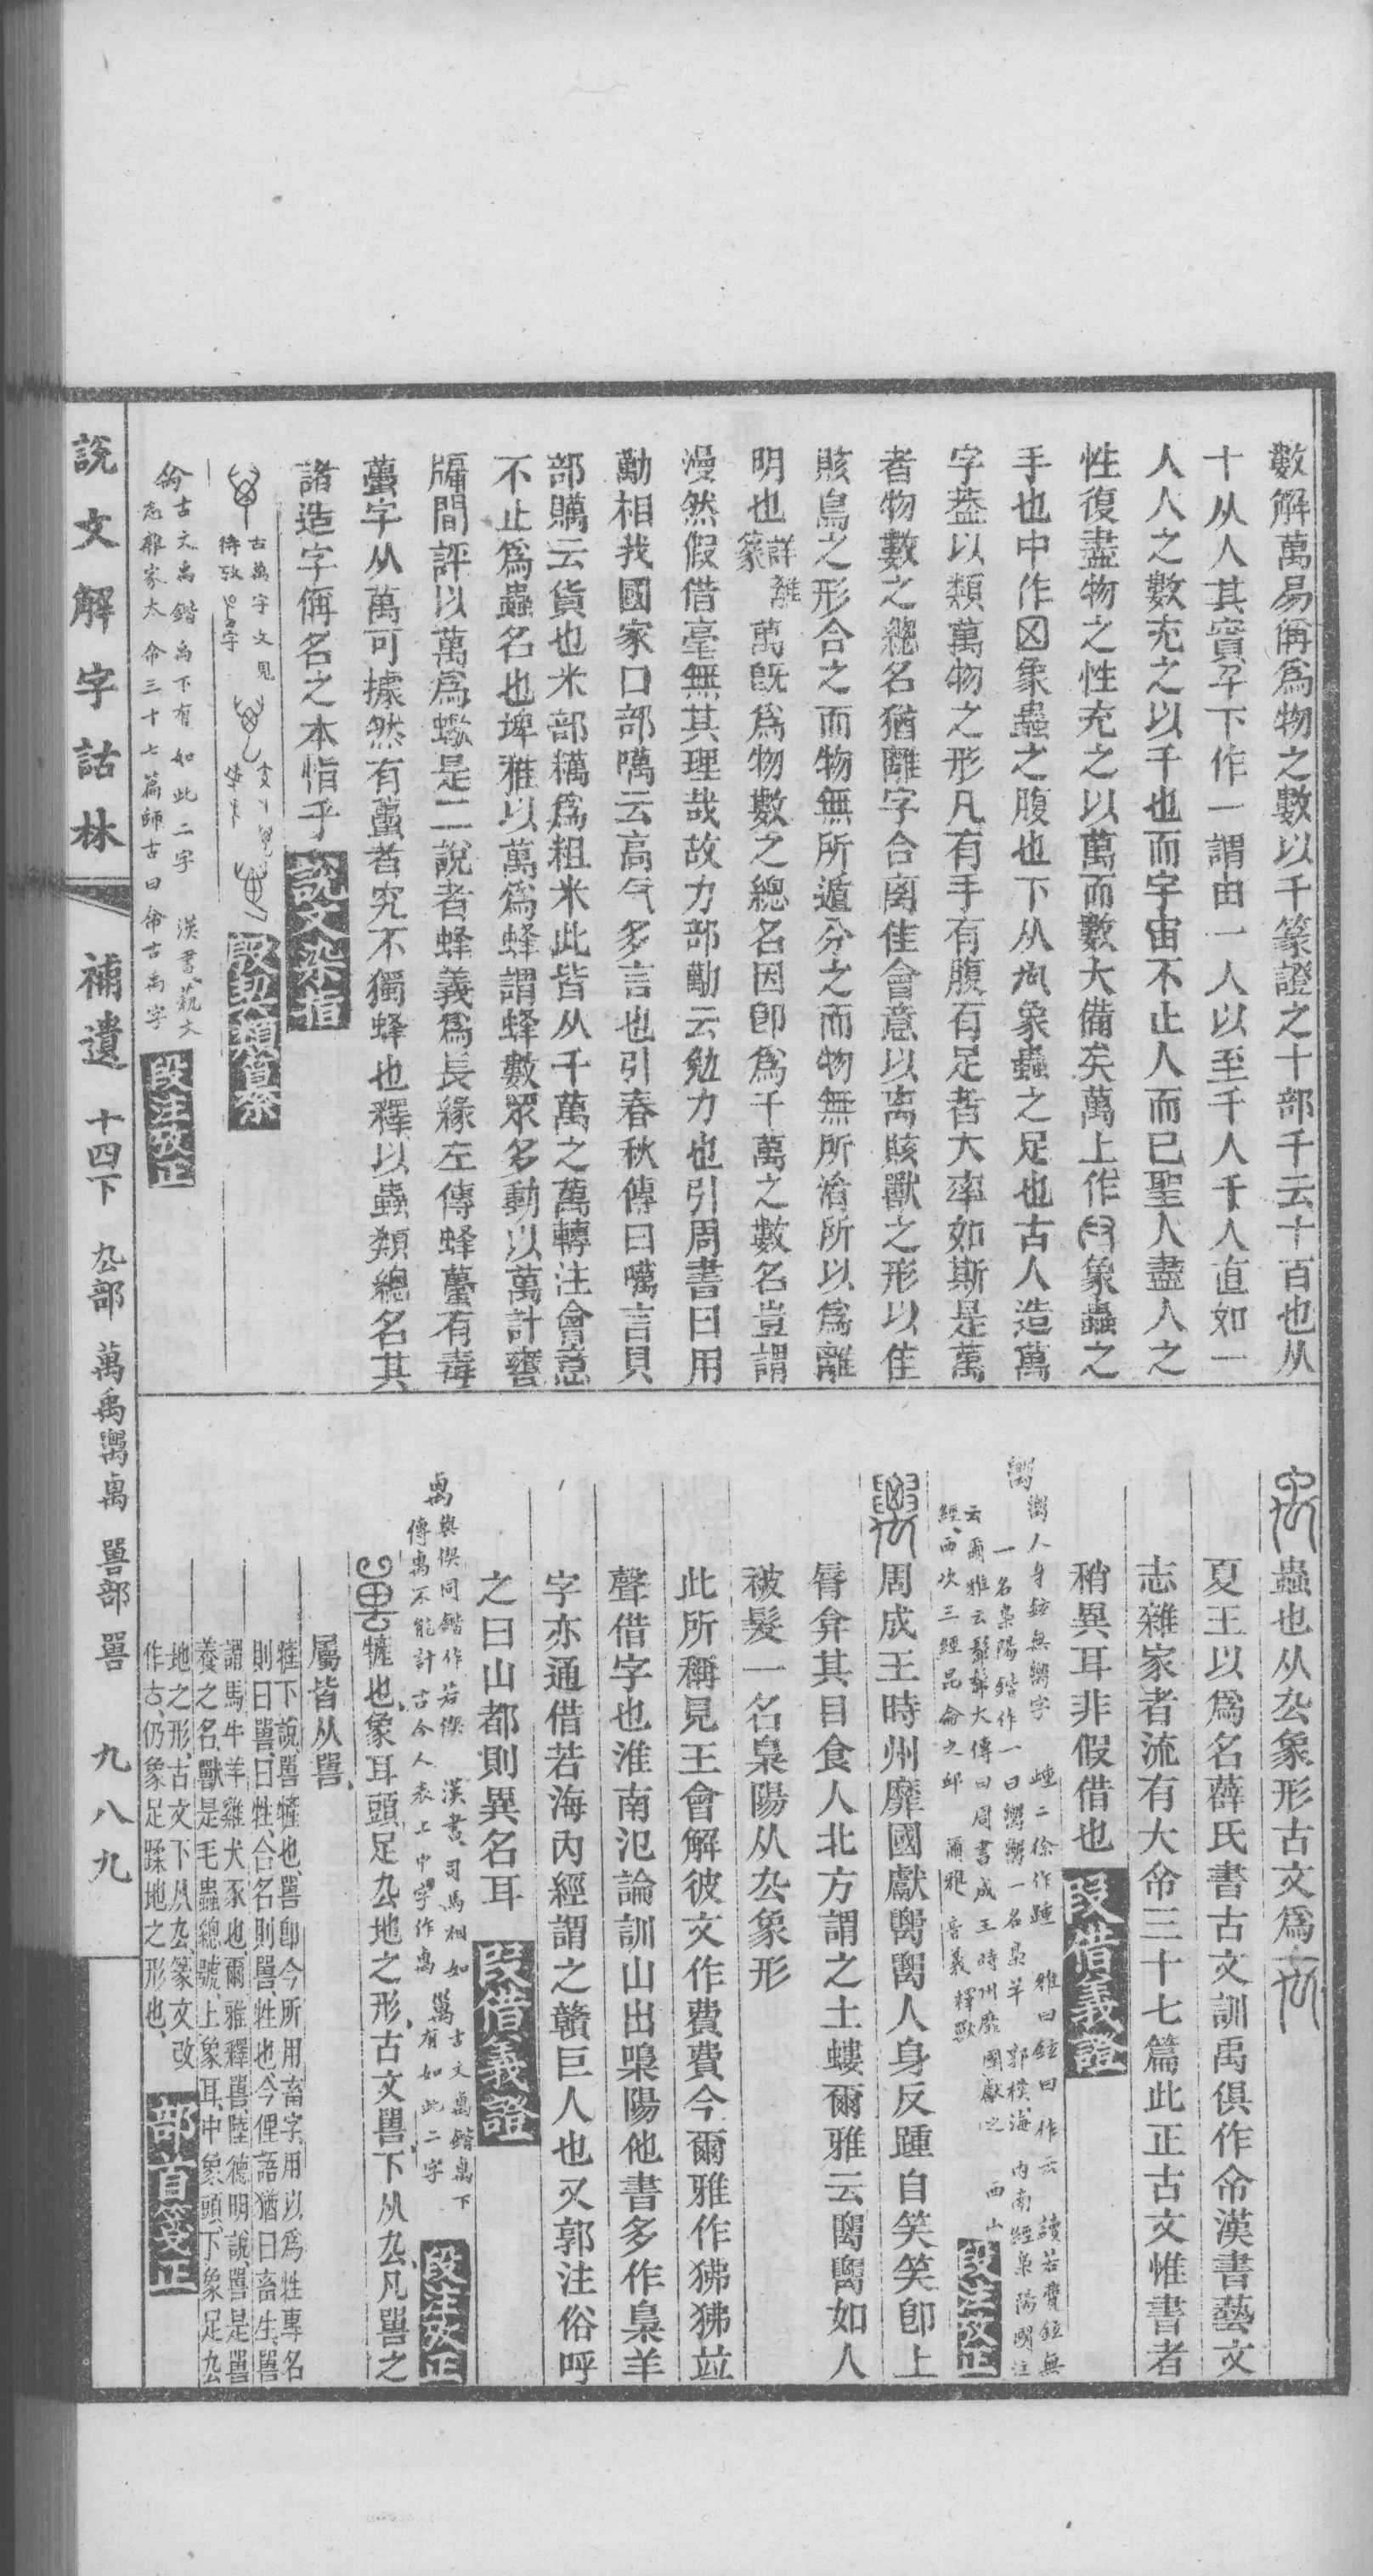 數解萬易偁爲物之數以千篆證之十部千云十百也从
十从人其實卂下作一謂由一人以至千人千人直如一
人人之數充之以千也而宇宙不止人而已聖人盡人之
性復盡物之性充之以萬而數大備矣萬上作象蟲之
手也中作象蟲之腹也下从禸象蟲之足也古人造萬
字葢以類萬物之形凡有手有腹有足者大率如斯是萬
者物數之總名猶離字合离隹會意以离賅獸之形以隹
賅鳥之形合之而物無所遁分之而物無所淆所以爲離
明也詳離篆萬旣爲物數之總名因卽爲千萬之數名豈謂
漫然假借毫無其理哉故力部勱云勉力也引周書曰用
勱相我國家口部噧云高气多言也引春秋傳曰噧言貝
部贎云貨也米部糲爲粗米此皆从千萬之萬轉注會意
不止爲蟲名也埤雅以萬爲蜂謂蜂數眾多動以萬計
牖間評以萬爲蠍是二說者蜂義爲長緣左傳蜂蠆有毒
蠆字从萬可據然有蠆者究不獨蜂也釋以蟲類總名其
諸造字偁名之本恉乎 說文染指
古萬字文見
待攷 字
殷契類纂
古文禹鍇禹下有如此二字 漢書藝文
志雜家大㑪三十七篇師古曰㑪古禹字 段注攷正
蟲也从厹象形古文爲
夏王以爲名薛氏書古文訓禹俱作㑪漢書藝文
志雜家者流有大㑪三十七篇此正古文惟書者
稍異耳非假借也 段借義證
人身鉉無字 歱二徐作踵 雅曰鉉曰作云 讀若費鉉無
一名梟陽鍇作一曰一名梟羊 郭樸海內南經梟陽國注
云爾雅云髴髴大傳曰周書成王時州靡國獻之 西山
經西次三經昆侖之邱 爾雅音義釋獸 段注攷正
周成王時州靡國獻𥝋𥝋人身反踵自笑笑卽上
脣弇其目食人北方謂之土螻爾雅云𥝋𥝋如人
被髮一名梟陽从厹象形
此所稱見王會解彼文作費費今爾雅作狒狒竝
聲借字也淮南氾論訓山出嘄陽他書多作梟羊
字亦通借若海內經謂之贛巨人也又郭注俗呼
之曰山都則異名耳 段借義證
卨與偰同鍇作若偰 漢書司馬相如 古文卨鍇卨下
傳卨不能計古今人表上中字作卨 有如此二字 段注攷正
㹌也象耳頭足厹地之形古文嘼下从厹凡嘼之
屬皆从嘼
㹌下說嘼㹌也嘼卽今所用畜字用以爲牲專名
則曰嘼曰牲合名則嘼牲也今俚語猶曰畜生嘼
謂馬牛羊雞犬豕也爾雅釋嘼陸德明說嘼是嘼
養之名獸是毛蟲總號上象耳中象頭下象足厹
地之形古文下从厹篆文改
作古仍象足蹂地之形也 部首箋正
說文解字詁林 補遺 十四下 厹部 萬禹𥝋卨 嘼部 嘼 九八九